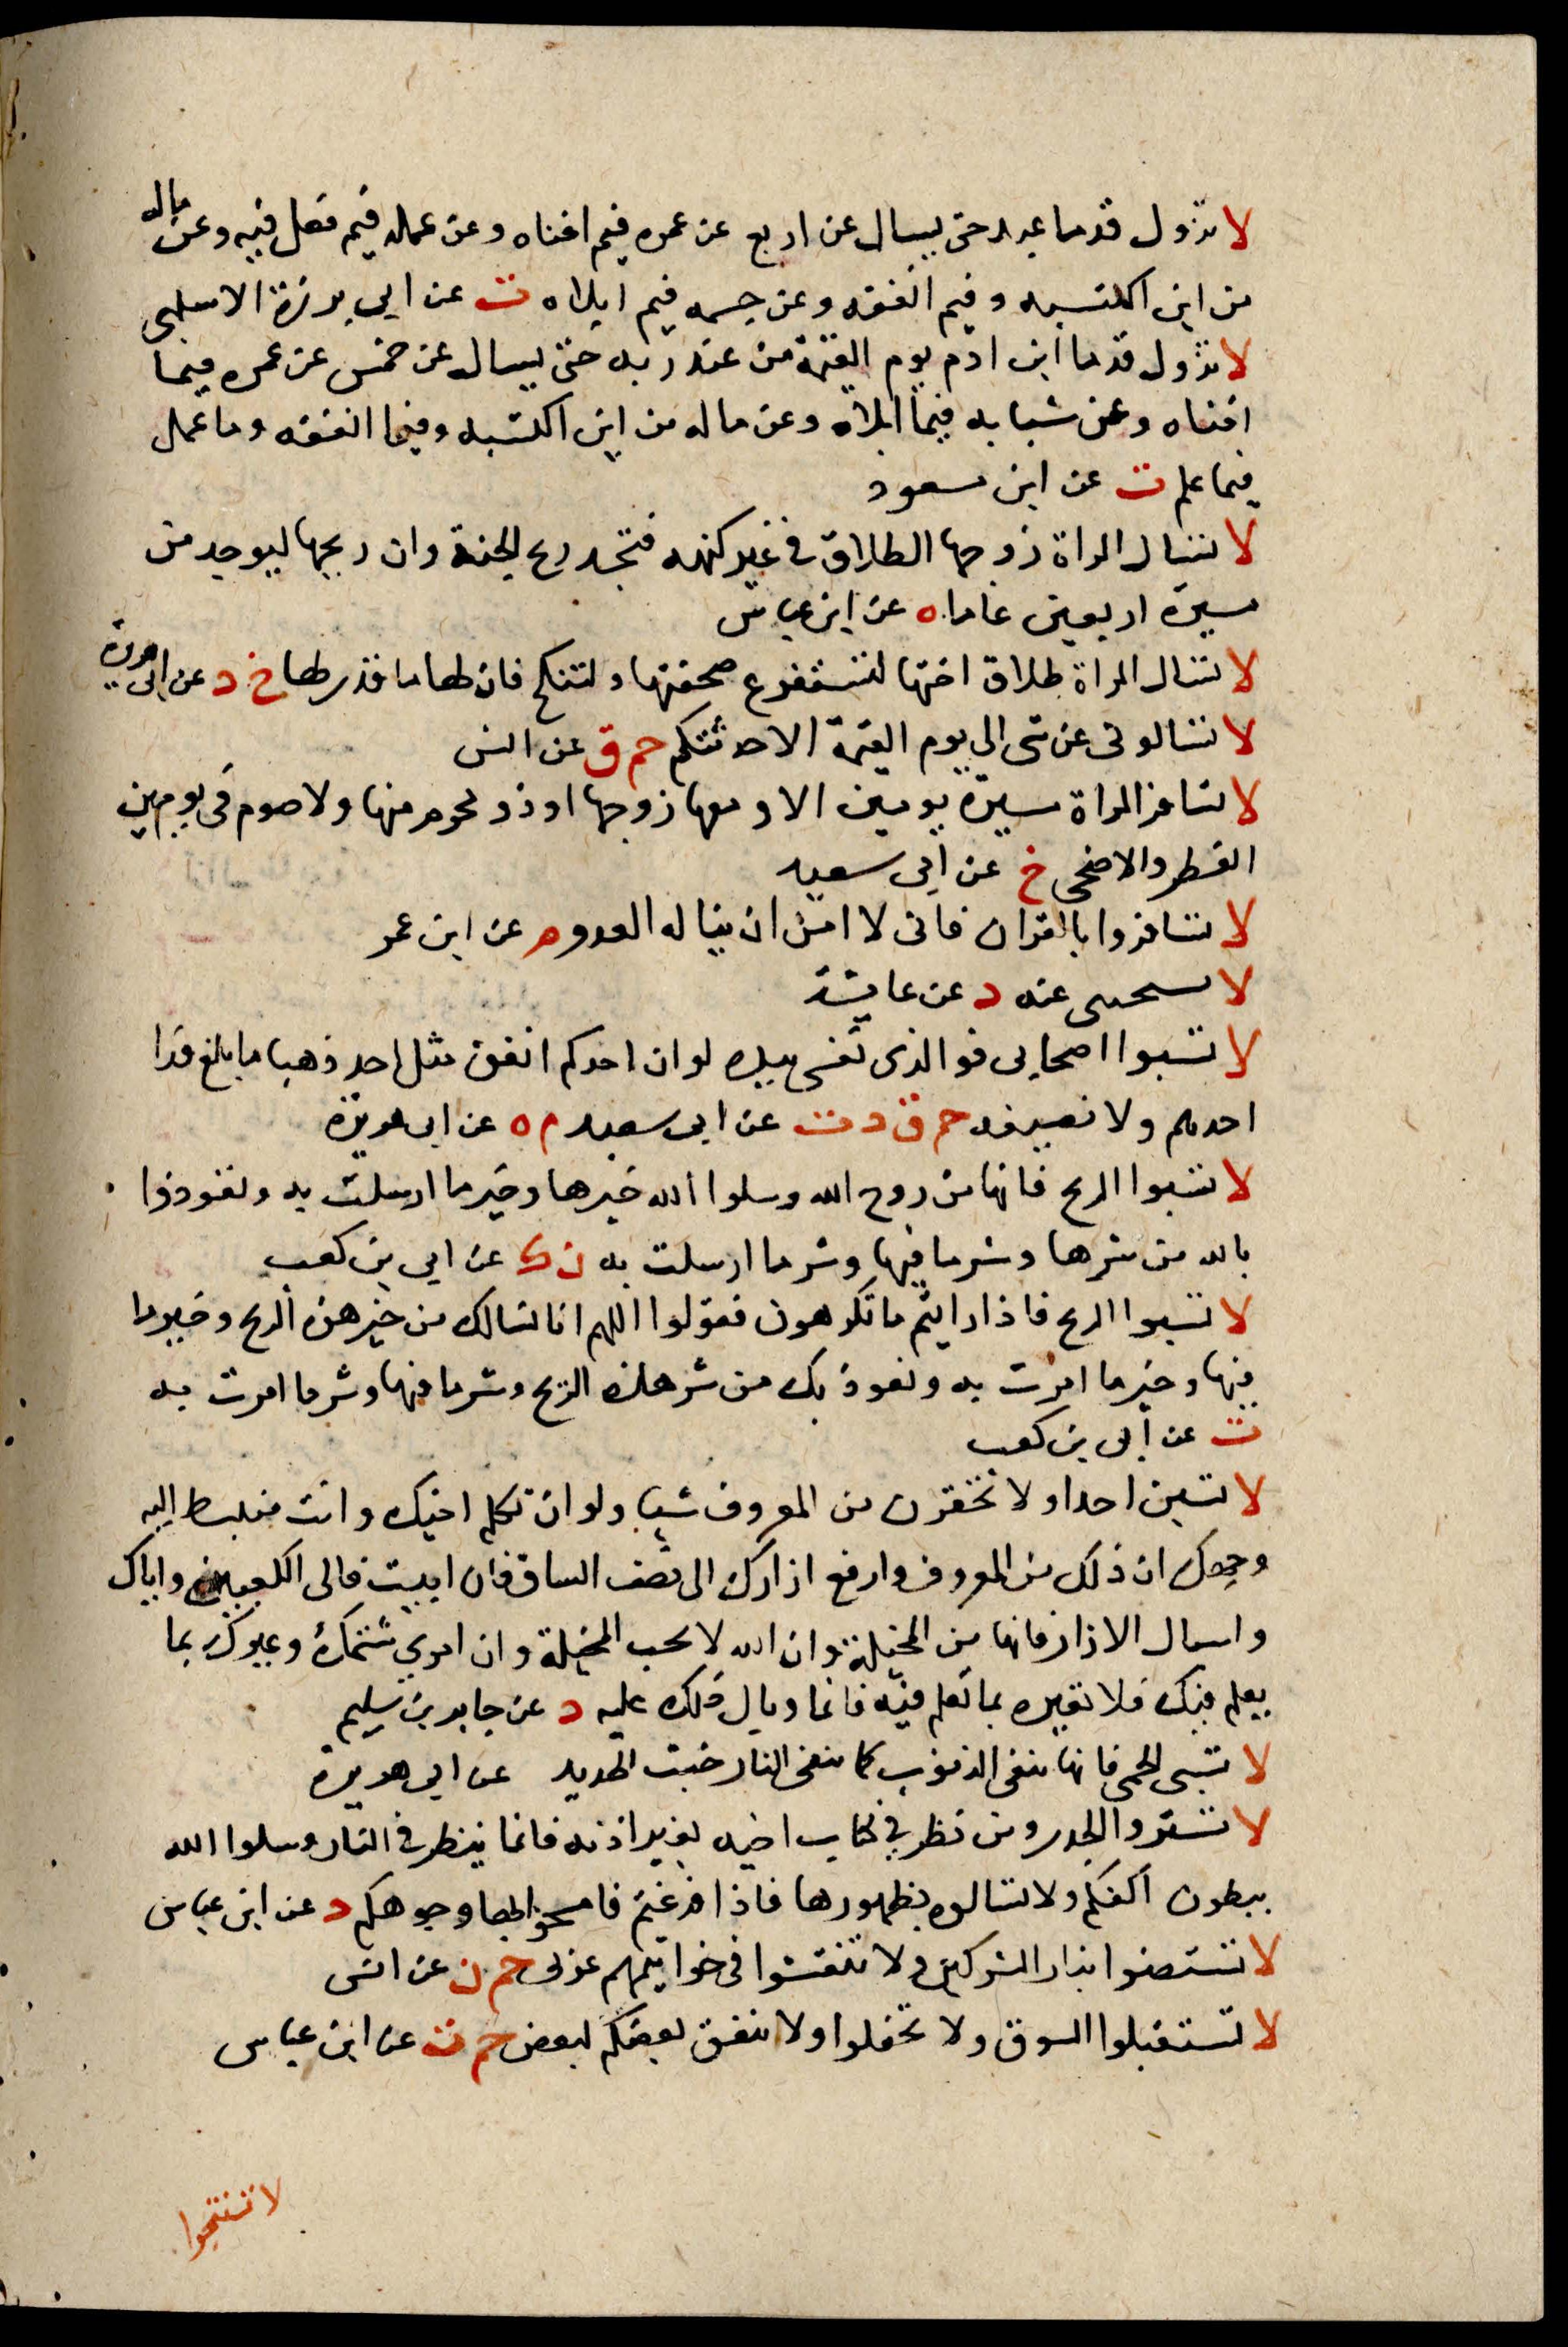 لا تزول قدما عبد حتى يسال عن اربع عن عمره فيم افناه وعن عمله فيم فعل فيه وعن ماله
من اين اكتسبه وفيم انفقه وعن جسمه فيم ابلاه ت عن ابي برزة الاسلمي
لا تزول قدما ابن ادم يوم القيمة من عند ربه حتى يسال عن خمس عن عمره فيما
افناه وعن شبابه فيما ابلاه وعن ماله من اين اكتسبه وفيما انفقه وما عمل
فيما علم ت عن ابن مسعود
لا تسال المراة زوجها الطلاق في غير كنهه فتجد ريح الجنة وان ريحها ليوجد من
مسيرة اربعين عاما ه عن ابن عباس
لا تسال المراة طلاق اختها لتستفرغ صحفتها ولتنكح فان لها ما قدر لها خ د عن ابى هريرة
لا تسالونى عن شى الى يوم القيمة الا حدثتكم حم ق عن انس
لا تسافر المراة مسيرة يومين الا ومعها زوجها او ذو محرم منها ولا صوم فى يومين
الفطر والاضحى خ عن ابى سعيد
لا تسافروا بالقران فانى لا امن ان يناله العدو م عن ابن عمر
لا تسبخى عنه د عن عايشة
لا تسبوا اصحابى فوالذى نفسى بيده لو ان احدكم انفق مثل احد ذهبا ما بلغ مدا
احدهم ولا نصيفه حم ق د ت عن ابى سعيد م ه عن ابى هريرة
لا تسبوا الريح فانها من روح الله وسلوا الله خيرها وخير ما ارسلت به وتعوذوا
بالله من شرها وشر ما فيها وشر ما ارسلت به ن ك عن ابى بن كعب
لا تسبوا الريح فاذا رايتم ما تكرهون فقولوا اللهم انا نسالك من خير هذه الريح وخير ما
فيها وخير ما امرت به ونعوذ بك من شر هذه الريح وشر ما فيها وشر ما امرت به
ت عن ابى بن كعب
لا تسبن احدا ولا تحقرن من المعروف شيا ولو ان تكلم اخيك وانت منبسط اليه
وجهك ان ذلك من المعروف وارفع ازارك الى نصف الساق فان ابيت فالى الكعبين واياك
واسبال الازار فانها من المخيلة وان الله لا يحب المخيلة وان امرئ شتمك وعيرك بما
يعلم فيك فلا تعيره بما تعلم فيه فانما وبال ذلك عليه د عن جابر بن سليم
لا تسبى الحمى فانها تنفى الذنوب كما تنفى النار خبث الحديد عن ابى هريرة
لا تستروا الجدر ومن نظر في كتاب اخيه بغير اذنه فانما ينظر في النار وسلوا الله
ببطون اكفكم ولا تسالوه بظهورها فاذا فرغتم فامسحوا بها وجوهكم د عن ابن عباس
لا تستضوا بنار المشركين ولا تنقشوا فى خواتيمهم عربى حم ن عن انس
لا تستقبلوا السوق ولا تحفلوا ولا ينفق بعضكم لبعض حم ت عن ابن عباس
لا تستنجوا